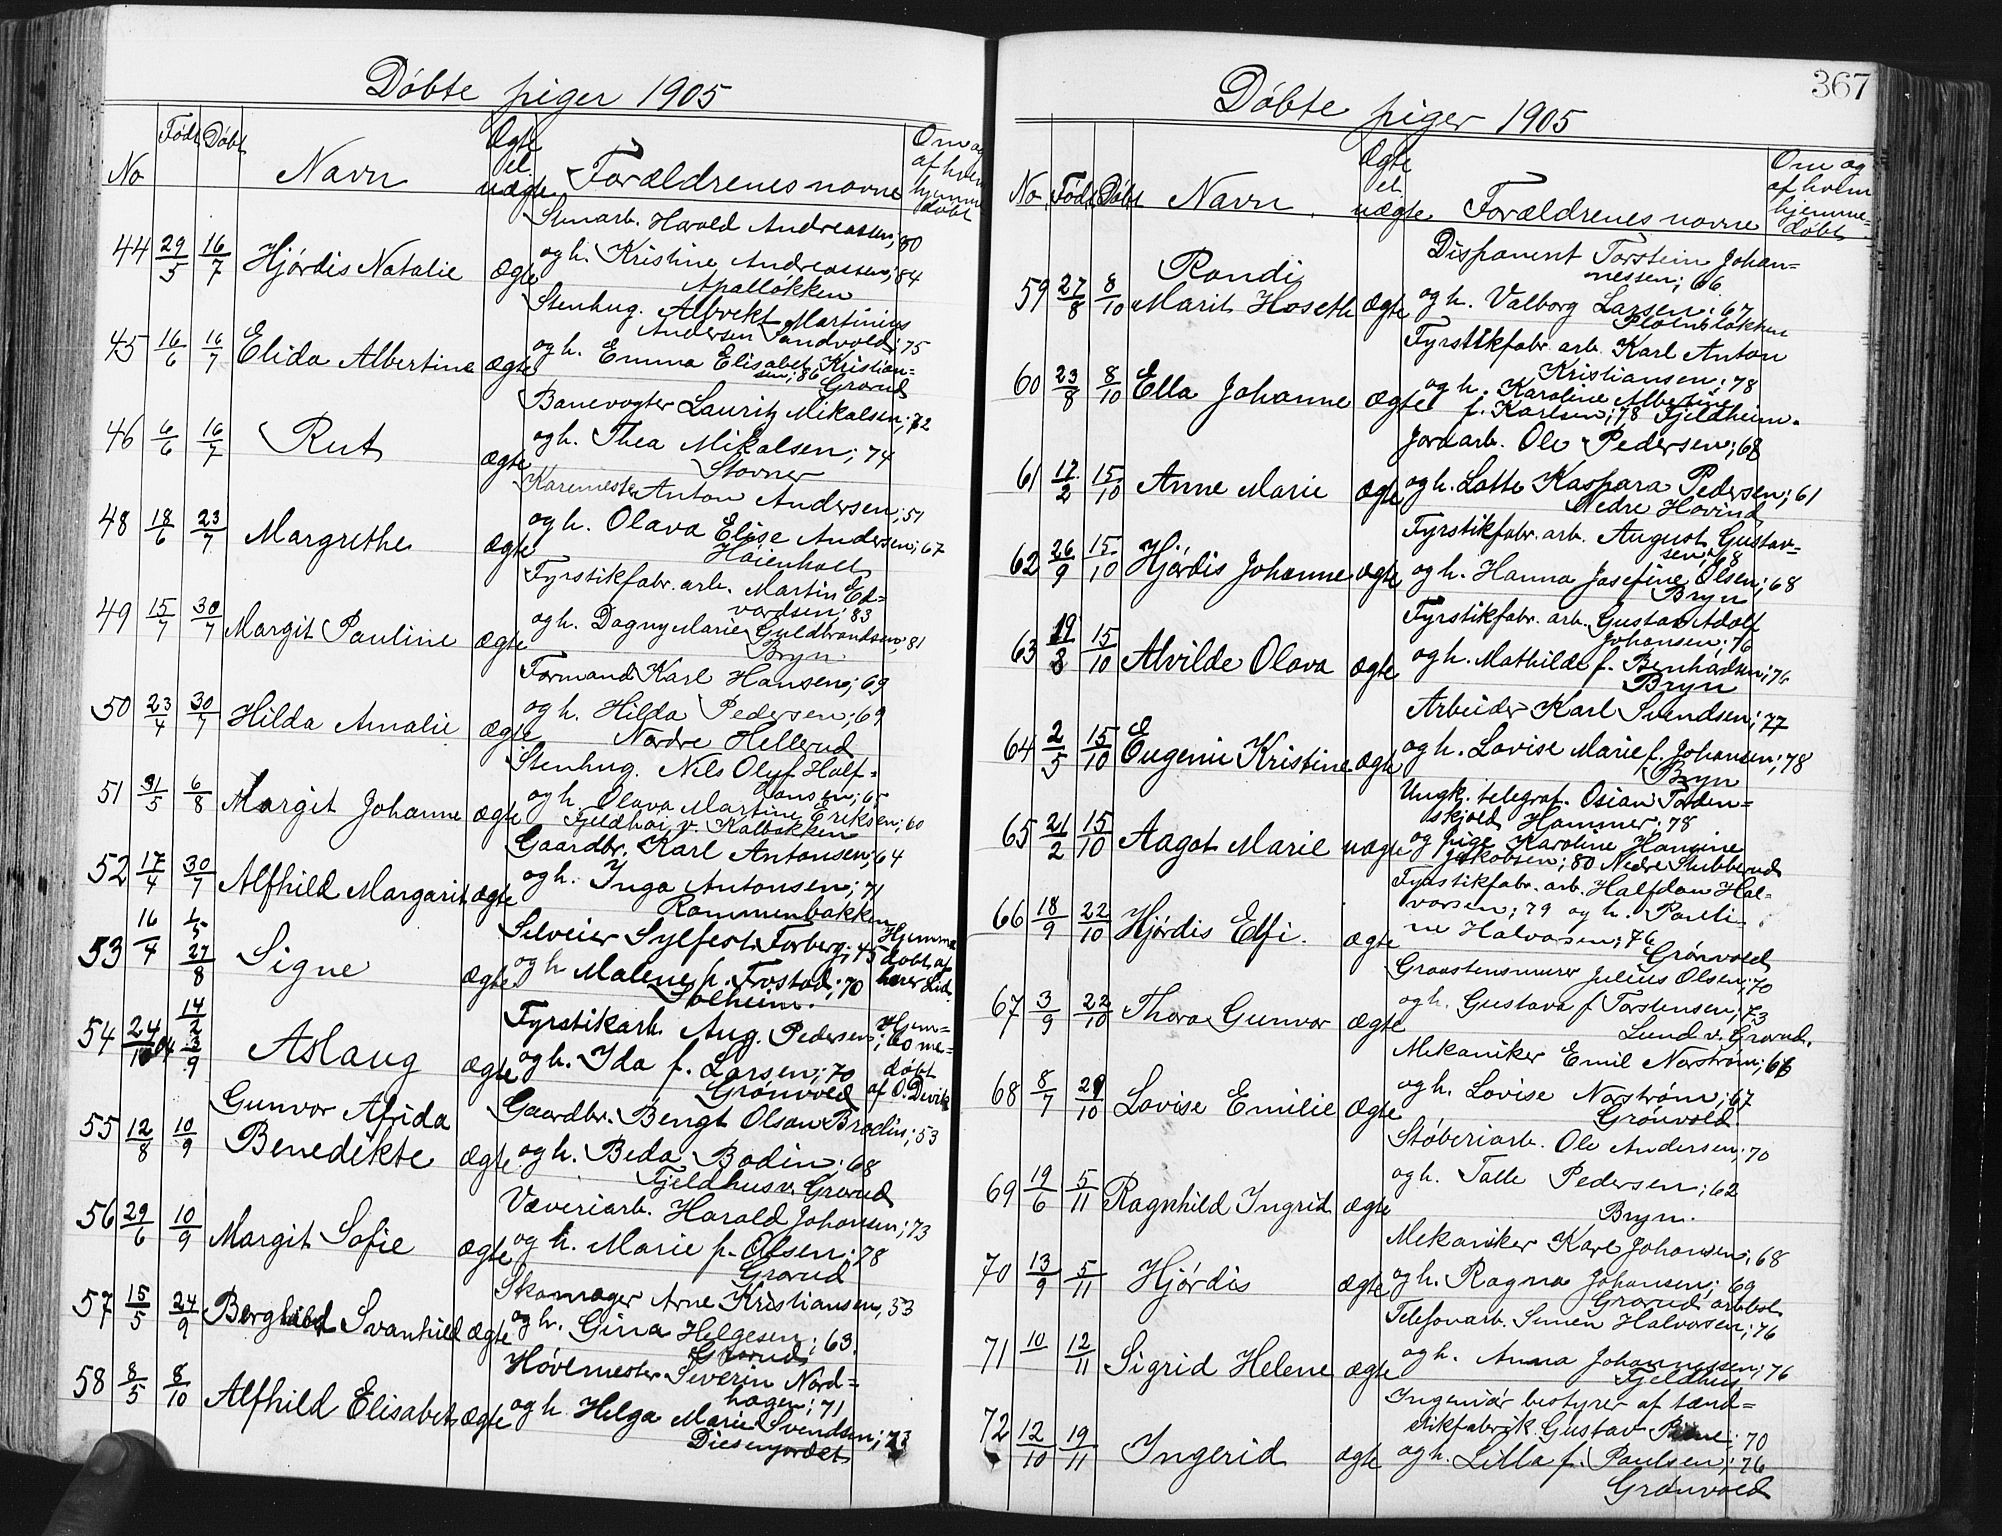 Døbte piger 1905
No Født Døbt Navn Ægte el. uægte Forældrenes navne Om og af hvem hjemme døbt
44 29/5 16/7 Hjørdis Natalie Ægte Stenarb. Harald Andreassen; 80
og h. Kristine Andreassen; 84
Apalløkken
45 16/6 16/7 Elida Albertine ægte Stenhug. Albrekt Martinius
Andersen Sandvold; 75
og h. Emma Elisabet Kristian-
sen; 86 Grorud
46 6/6 16/7 Rut ægte Banevogter Lauritz Mikalsen; 72
og h. Thea Mikalsen; 74
Stovner
48 18/6 23/7 Margrethe ægte Anton Andersen; 51
og h. Olava Elise Andersen; 67
Høienhall
49 15/7 30/7 Margit Pauline ægte Fyrstikfabr. arb. Martin Ed-
vardsen; 83
og h. Dagny Marie Guldbrandsen; 81
Bryn
50 23/4 30/7 Hilda Amalie ægte Formand Karl Hansen; 69
og h. Hilda Pedersen; 69
Nordre Hellerud
51 31/5 6/8 Margit Johanne ægte Stenhug. Nils Oluf Half-
dansen; 65
og h. Olava Martine Eriksen; 60
Fjeldhøi v. Kalbakken
52 17/4 30/7 Alfhild Margarit ægte Gaardbr. Karl Antonsen; 64
og h. Inga Antonsen; 71
Rommenbakken
53 16/4 1/5 27/8 Signe ægte Silveier Sylfest Forberg; 45
og h Malene f. Frostad; 70
Solheim.
Hjemme døbt af
54 24/10 04 14/2 3/9 Aslaug ægte Fyrstikarb. Aug. Pedersen; 60
og h. Ida f. Larsen; 70
Grønvold
Hjem-
me-
døbt
af O. Devik
55 12/8 10/9 Gunvor Afida
Benedikte ægte Gaardbr. Bengt Olsan Brodin; 53
og h. Beda Bodin; 68
Fjeldhus v. Grorud
56 29/6 10/9 Margit Sofie ægte Væveriarb. Harald Johansen; 73
og h. Marie f. Olsen; 78
Grorud
57 15/5 24/9 Borghild Svanhild ægte Skomager Arne Kristiansen, 53
og h. Gina Helgesen; 63.
Grorud
58 8/5 8/10 Alfhild Elisabet ægte Høvlemester Severin Nord-
hagen; 71
og h. Helga Marie Svendsen; 73
Diesenjordet
367
Døbte piger 1905
No Født Døbt Navn Ægte el. uægte Forældrenes navne Om og af hvem hjemme- døbt
59 27/8 8/10 Randi
Marit Hoseth ægte Disponent Torstein Johan-
nessen; 66.
og h. Valborg Larsen; 67
60 23/8 8/10 Ella Johanne ægte Fyrstikfabr. arb. Karl Anton
Kristiansen; 78
og h. Karoline Albertine
f. Karlsen; 78 Fjeldheim.
61 17/2 15/10 Anne Marie ægte Jordarb. Ole Pedersen; 68
og h. Lotte Kaspara Pedersen; 61
Nedre Hovind
62 26/9 15/10 Hjørdis Johanne ægte Fyrstikfabr. arb. August Gustav-
sen;
og h. Hanna Josefine Olsen; 68
Bryn
63 19/8 15/10 Alvilde Olava ægte Fyrstikfabr. arb. Gustav Adolf
Johansen; 76
og h. Mathilde f. Benhardsen; 76
Bryn
64 2/5 15/10 Eugenie Kristine ægte Arbeider Karl Svendsen; 77
og h. Lovise Marie f. Johansen; 78
Bryn
65 21/2 15/10 Aagot Marie uægte Ungk. telegraf. Osian Torden-
skjold Hammer; 78
og pige Karoline Hansine
Jakobsen; 80 Nedre Stubberud
66 18/9 22/10 Hjørdis Elfi. ægte Fyrstikfabr. arb. Halfdan Hal-
vorsen; 79 og h. Pauli-
ne Halvorsen; 76
Grønvold
67 3/9 22/10 Thora Gunvor ægte Graastensmurer Julius Olsen; 70
og h. Gustava f Torstensen; 73
Lund v. Grorud.
68 8/7 29/10 Lovise Emilie ægte Mekaniker Emil Norstrøm; 66
og h. Lovise Norstrøm; 67
Grønvold.
69 19/6 5/11 Ragnhild Ingrid ægte Støberiarb. Ole Andersen; 70
og h. Talle Pedersen; 62
Bryn.
70 13/9 5/11 Hjørdis ægte Mekaniker Karl Johansen; 68
og h. Ragna Johansen; 69
Grorud arbbol
71 10 12/11 Sigrid Helene ægte Telefonarb. Simen Halvorsen; 76
og h. Anna Johannessen; 76
Fjeldhus
72 12/10 19/11 Ingerid ægte Ingeniør bestyrer af tænd-
stikfabrik Gustav; 70
og h. Lilla f. Paulsen; 76
Grønvold